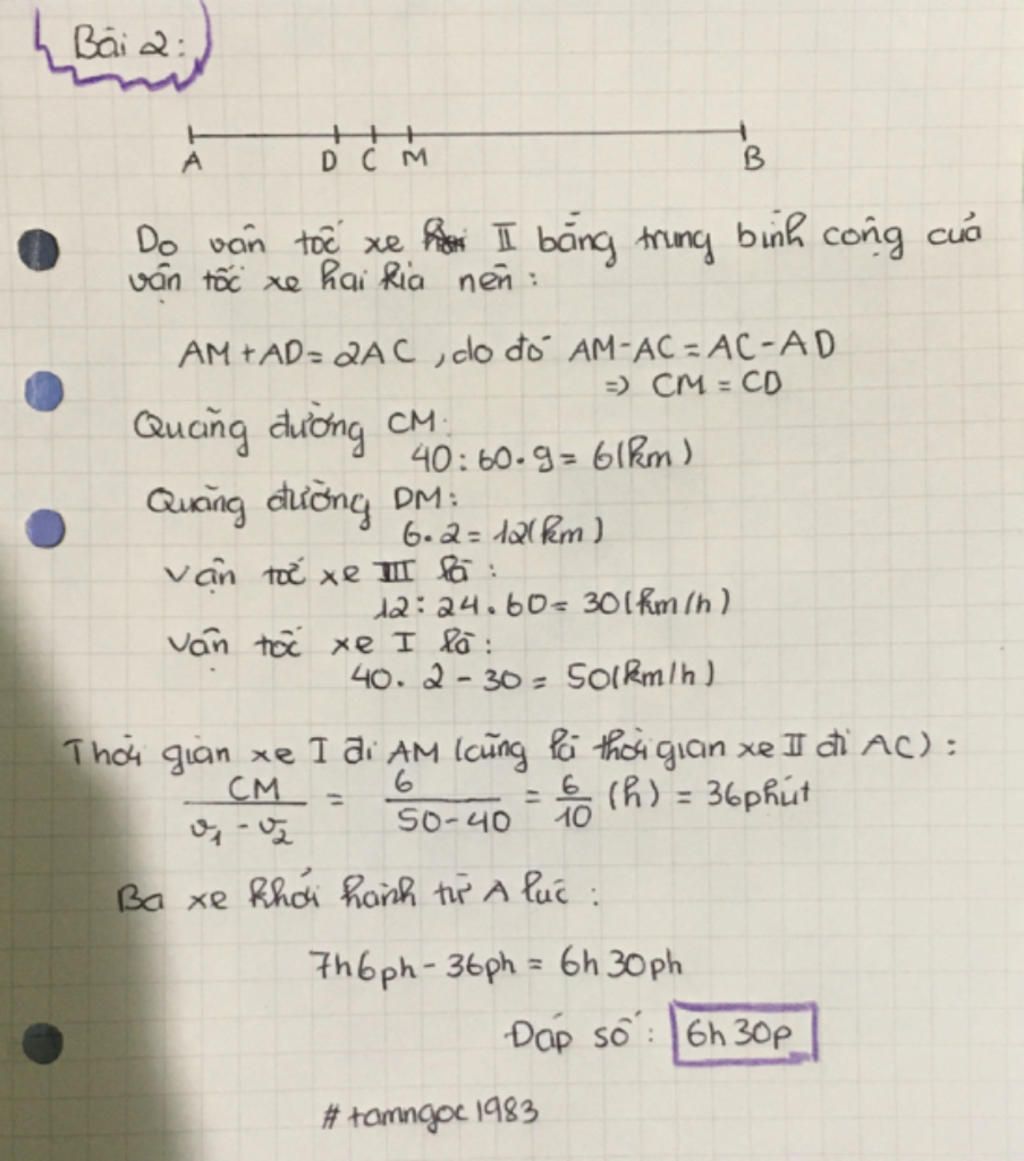 Bài 2:
A D C M B
Do vận tốc xe II bằng trung bình cộng của
vận tốc xe hai kia nên:
AM + AD = 2AC, do đó AM - AC = AC - AD
=> CM = CD
Quãng đường CM:
40 : 60 . 9 = 6 (km)
Quãng đường DM:
6 . 2 = 12 (km)
Vận tốc xe III là:
12 : 24 . 60 = 30 (km/h)
Vận tốc xe I là:
40 . 2 - 30 = 50 (km/h)
Thời gian xe I đi AM (cũng là thời gian xe II đi AC):
CM / (v₁ - v₂) = 6 / (50 - 40) = 6/10 (h) = 36 phút
Ba xe khởi hành từ A lúc:
7h6ph - 36ph = 6h30ph
Đáp số: 6h30p
#tamngoc1983